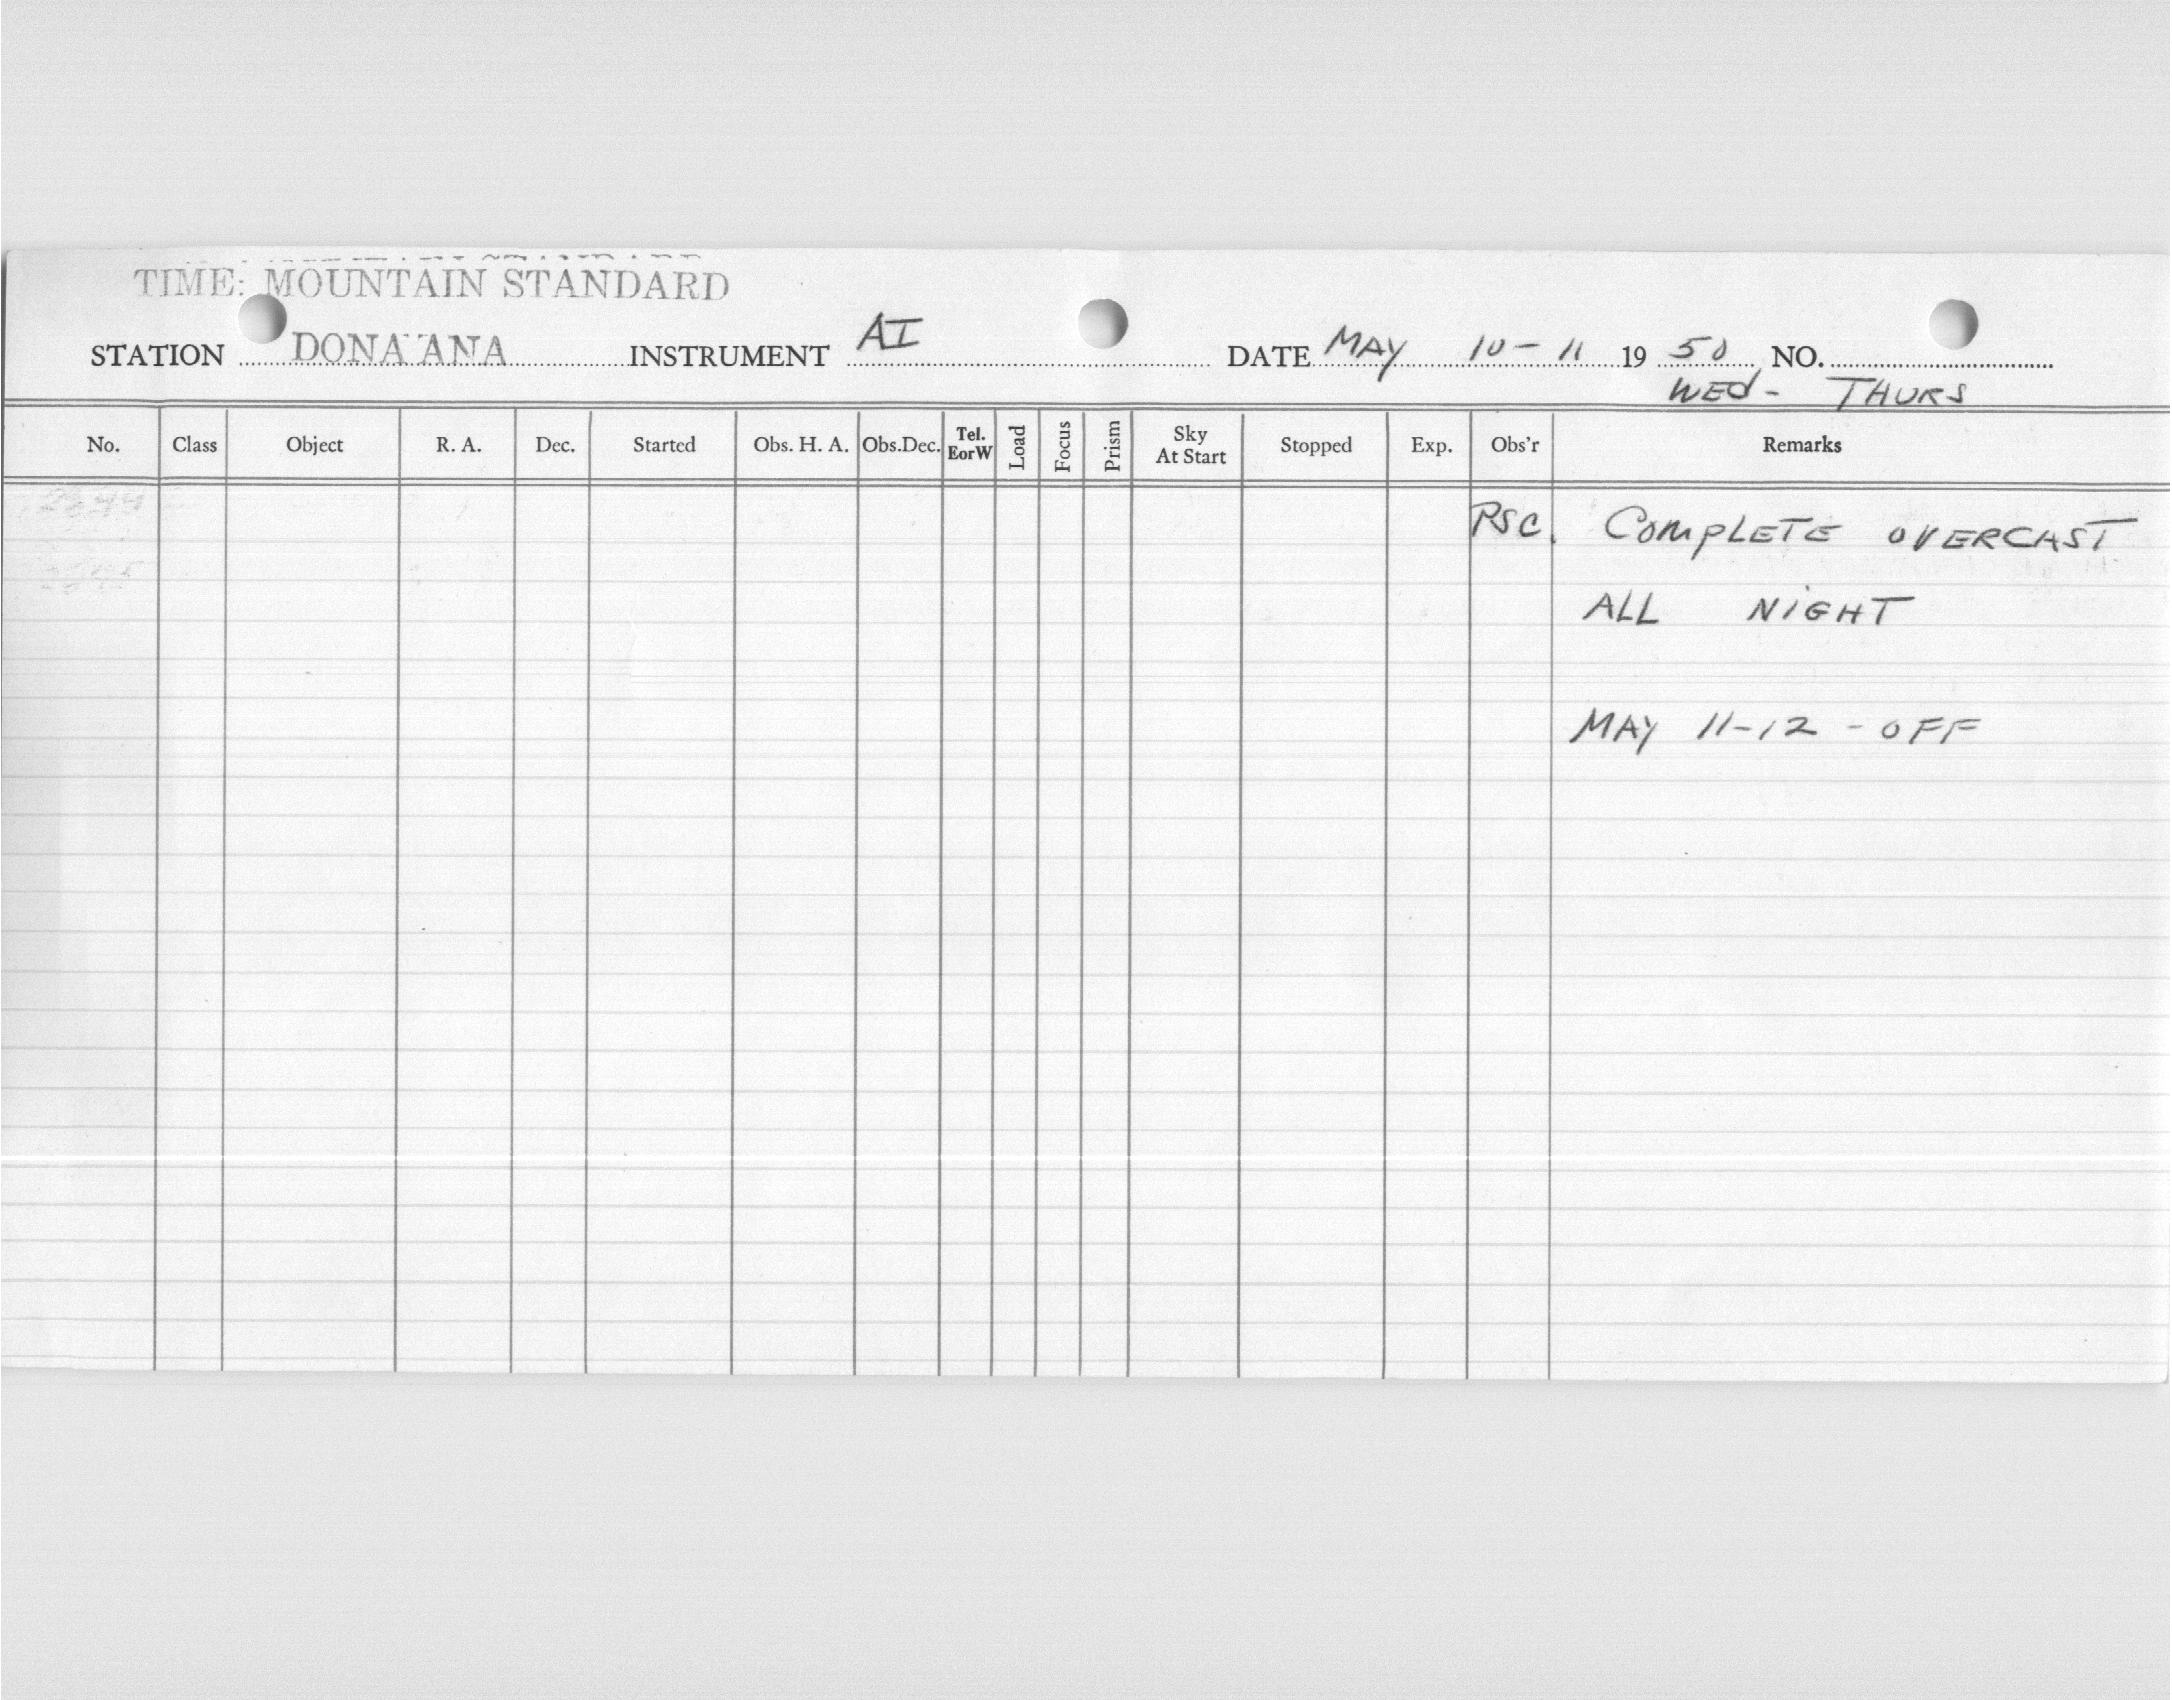 TIME: MOUNTAIN STANDARD
STATION DONA ANA INSTRUMENT AI DATE MAY 10-11 1950 NO.
WED- THURS
No. Class Object R. A. Dec. Started Obs. H. A. Obs.Dec. Tel. EorW Load Focus Prism Sky At Start Stopped Exp. Obs'r Remarks
PSC. COMPLETE OVERCAST
ALL NIGHT
MAY 11-12 - OFF